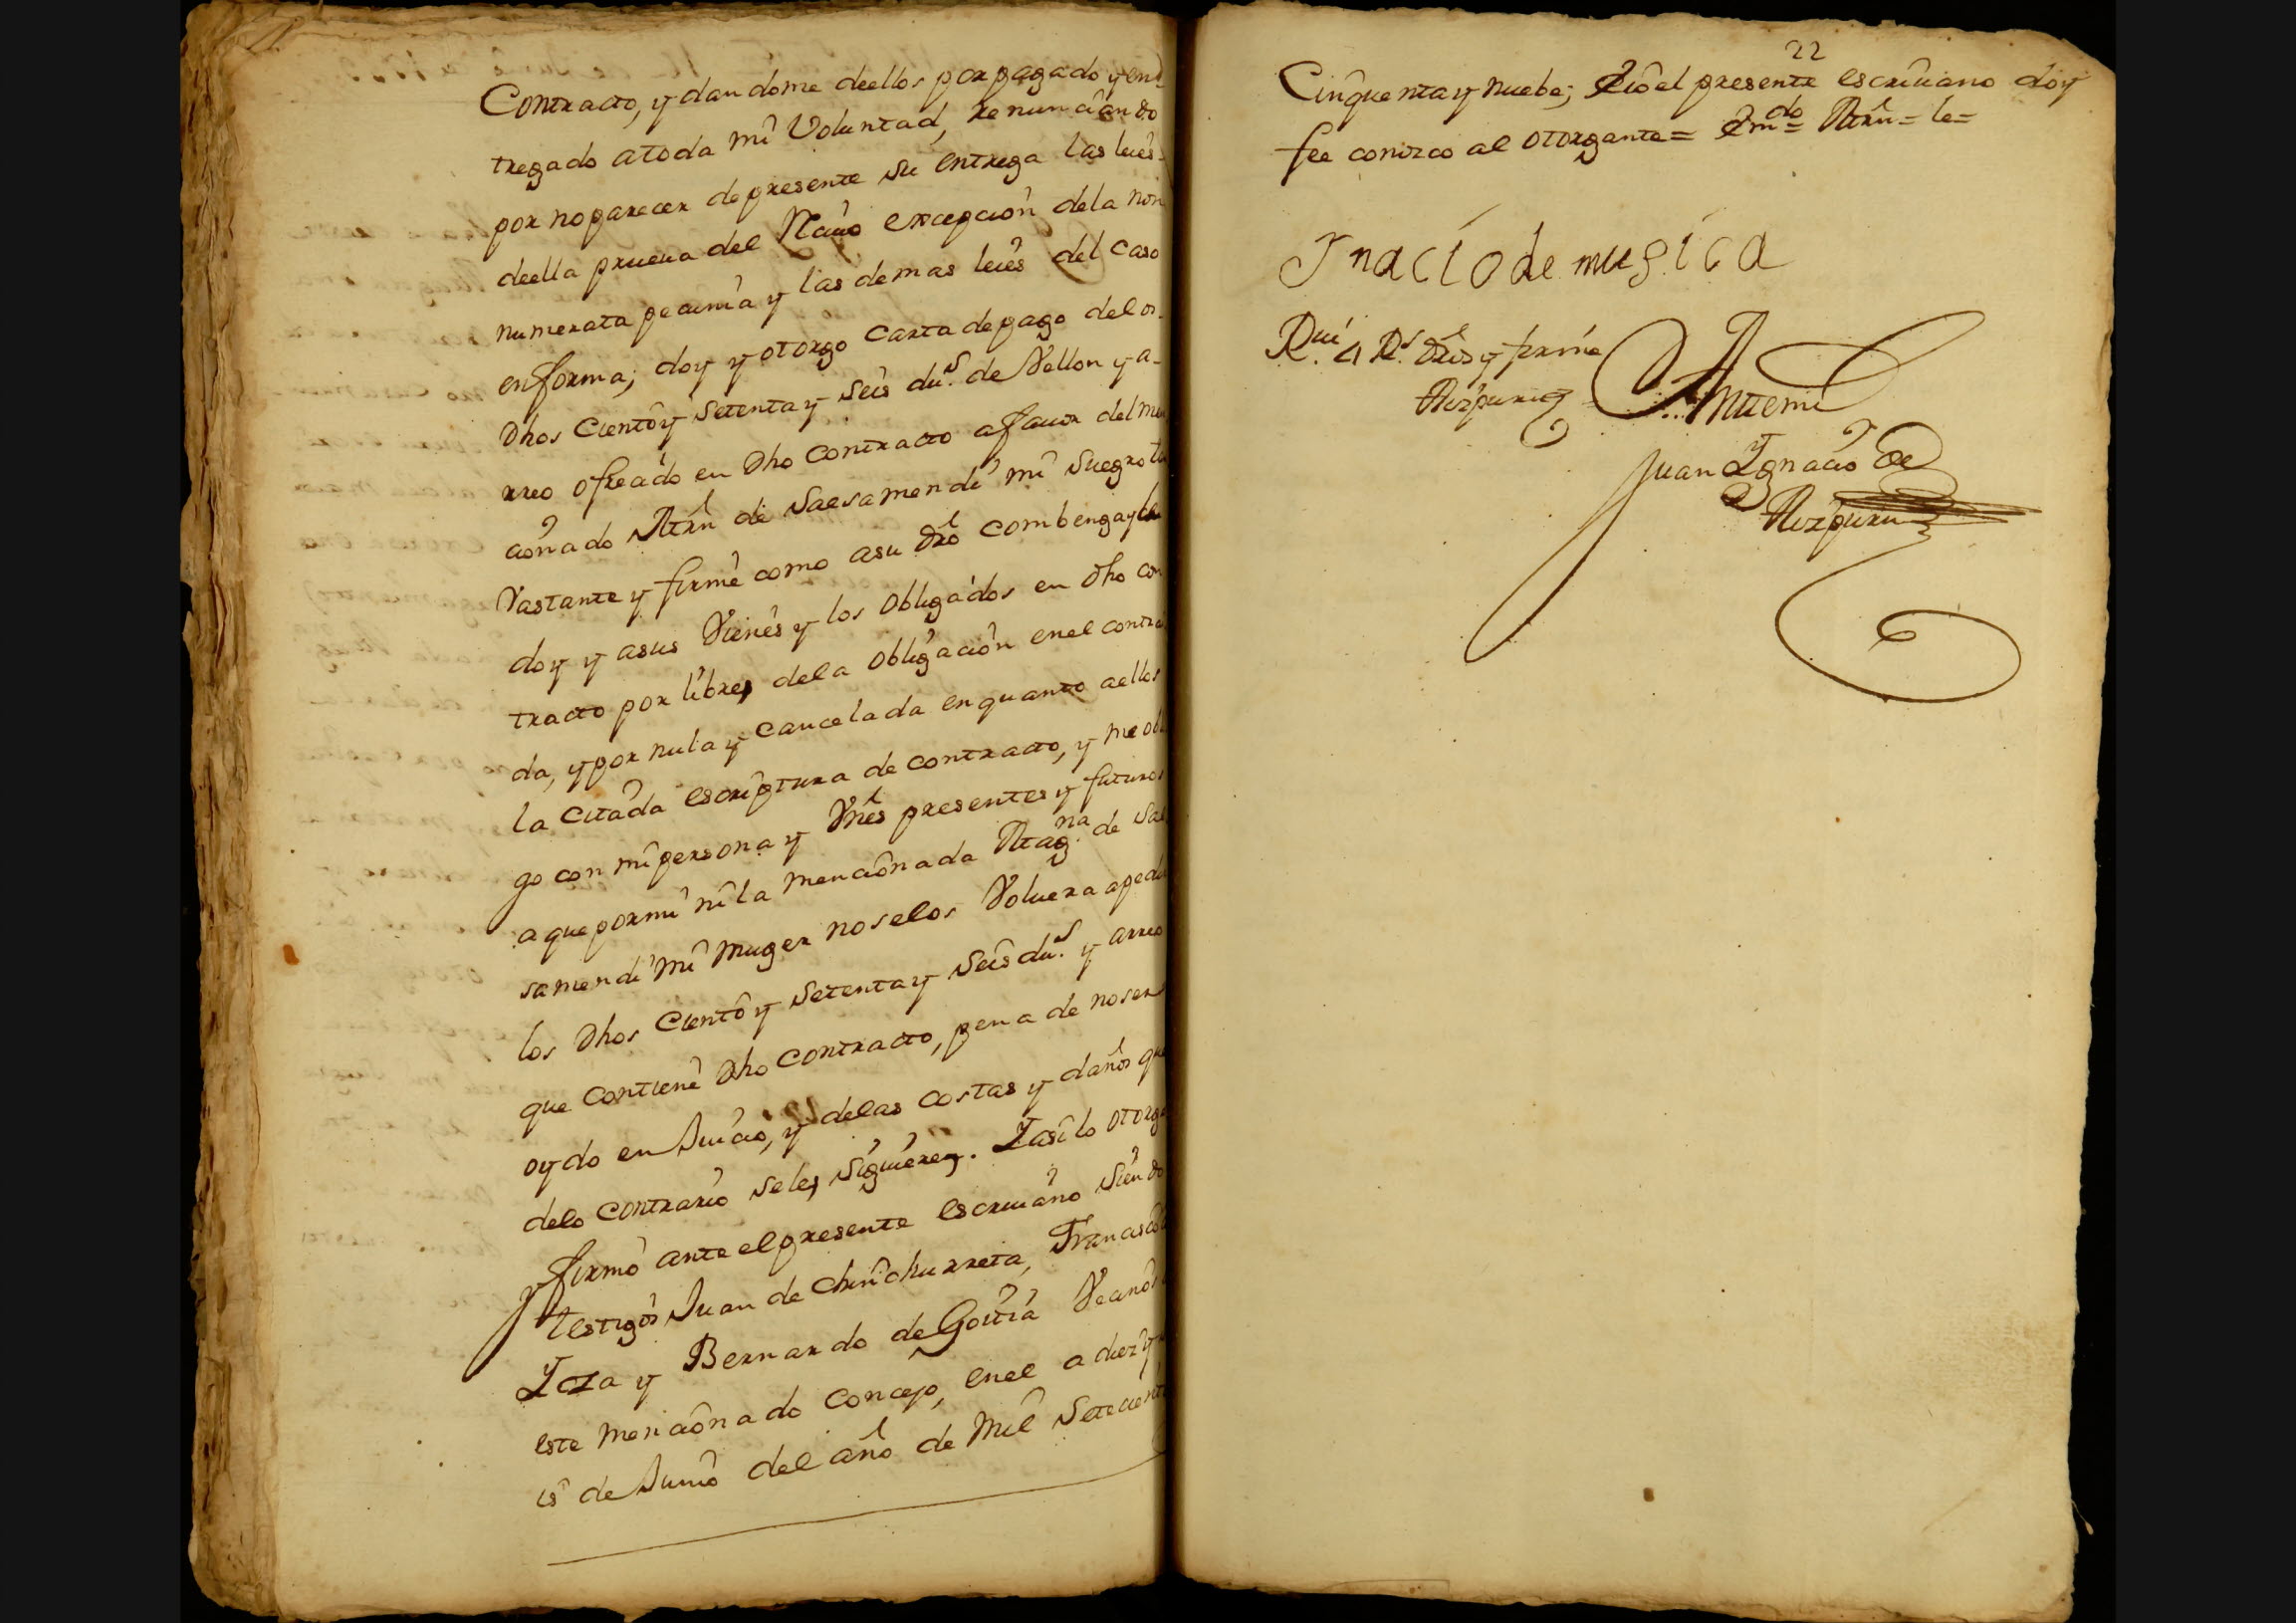 Contracto, y dandome deellos por pagado y en-
tregado atoda mi Voluntad, renunciando
por no parecer de presente su entrega las leies
deella prueua del Reciuo excepcion dela non
numerata pecunia y las demas leies del caso
en forma; doy y otorgo carta de pago delos
Dhos Ciento y setenta y seis du.s de Vellon y a-
rreo ofrecido en Dho Contracto afauor del men
cionado Mrn de Saesamendi mi suegro tan
Vastante y firme como asu dro combenga y le
doy y asus Vienes y los obligados en dho con
tracto por libres dela obligacion enel contrai
da, y por nula y cancelada enquanto aellos
la citada escriptura de contracto, y me obli
go con mi persona y Vnes presentes y futuros
a que por mi ni la mencionada Mag.na de Sae
samendi mi muger noselos Voluera apedir
los Dhos Ciento y setenta y seis du.s y arreo
que contiene Dho contracto, pena de noser
oydo en Juicio, y delas costas y daños que
delo contrario seles siguieren. Y asi lo otorgo
y firmo ante el presente escriuano siendo
testigos Juan de Chinchurreta, Francisco
Yza y Bernardo de Goitia Vecinos
este mencionado concejo, enel a diez y
is de Junio del año de Mil setecient
22
Cinquenta y nuebe; E io el presente escriuano doy
fee conozco al otorgante = Em.do = Mrn = le =
Inacio de mugica
R.ui 4 R.s dros y firme
Aizpuru
Antemi
Juan Ygnacio de
Aizpuru